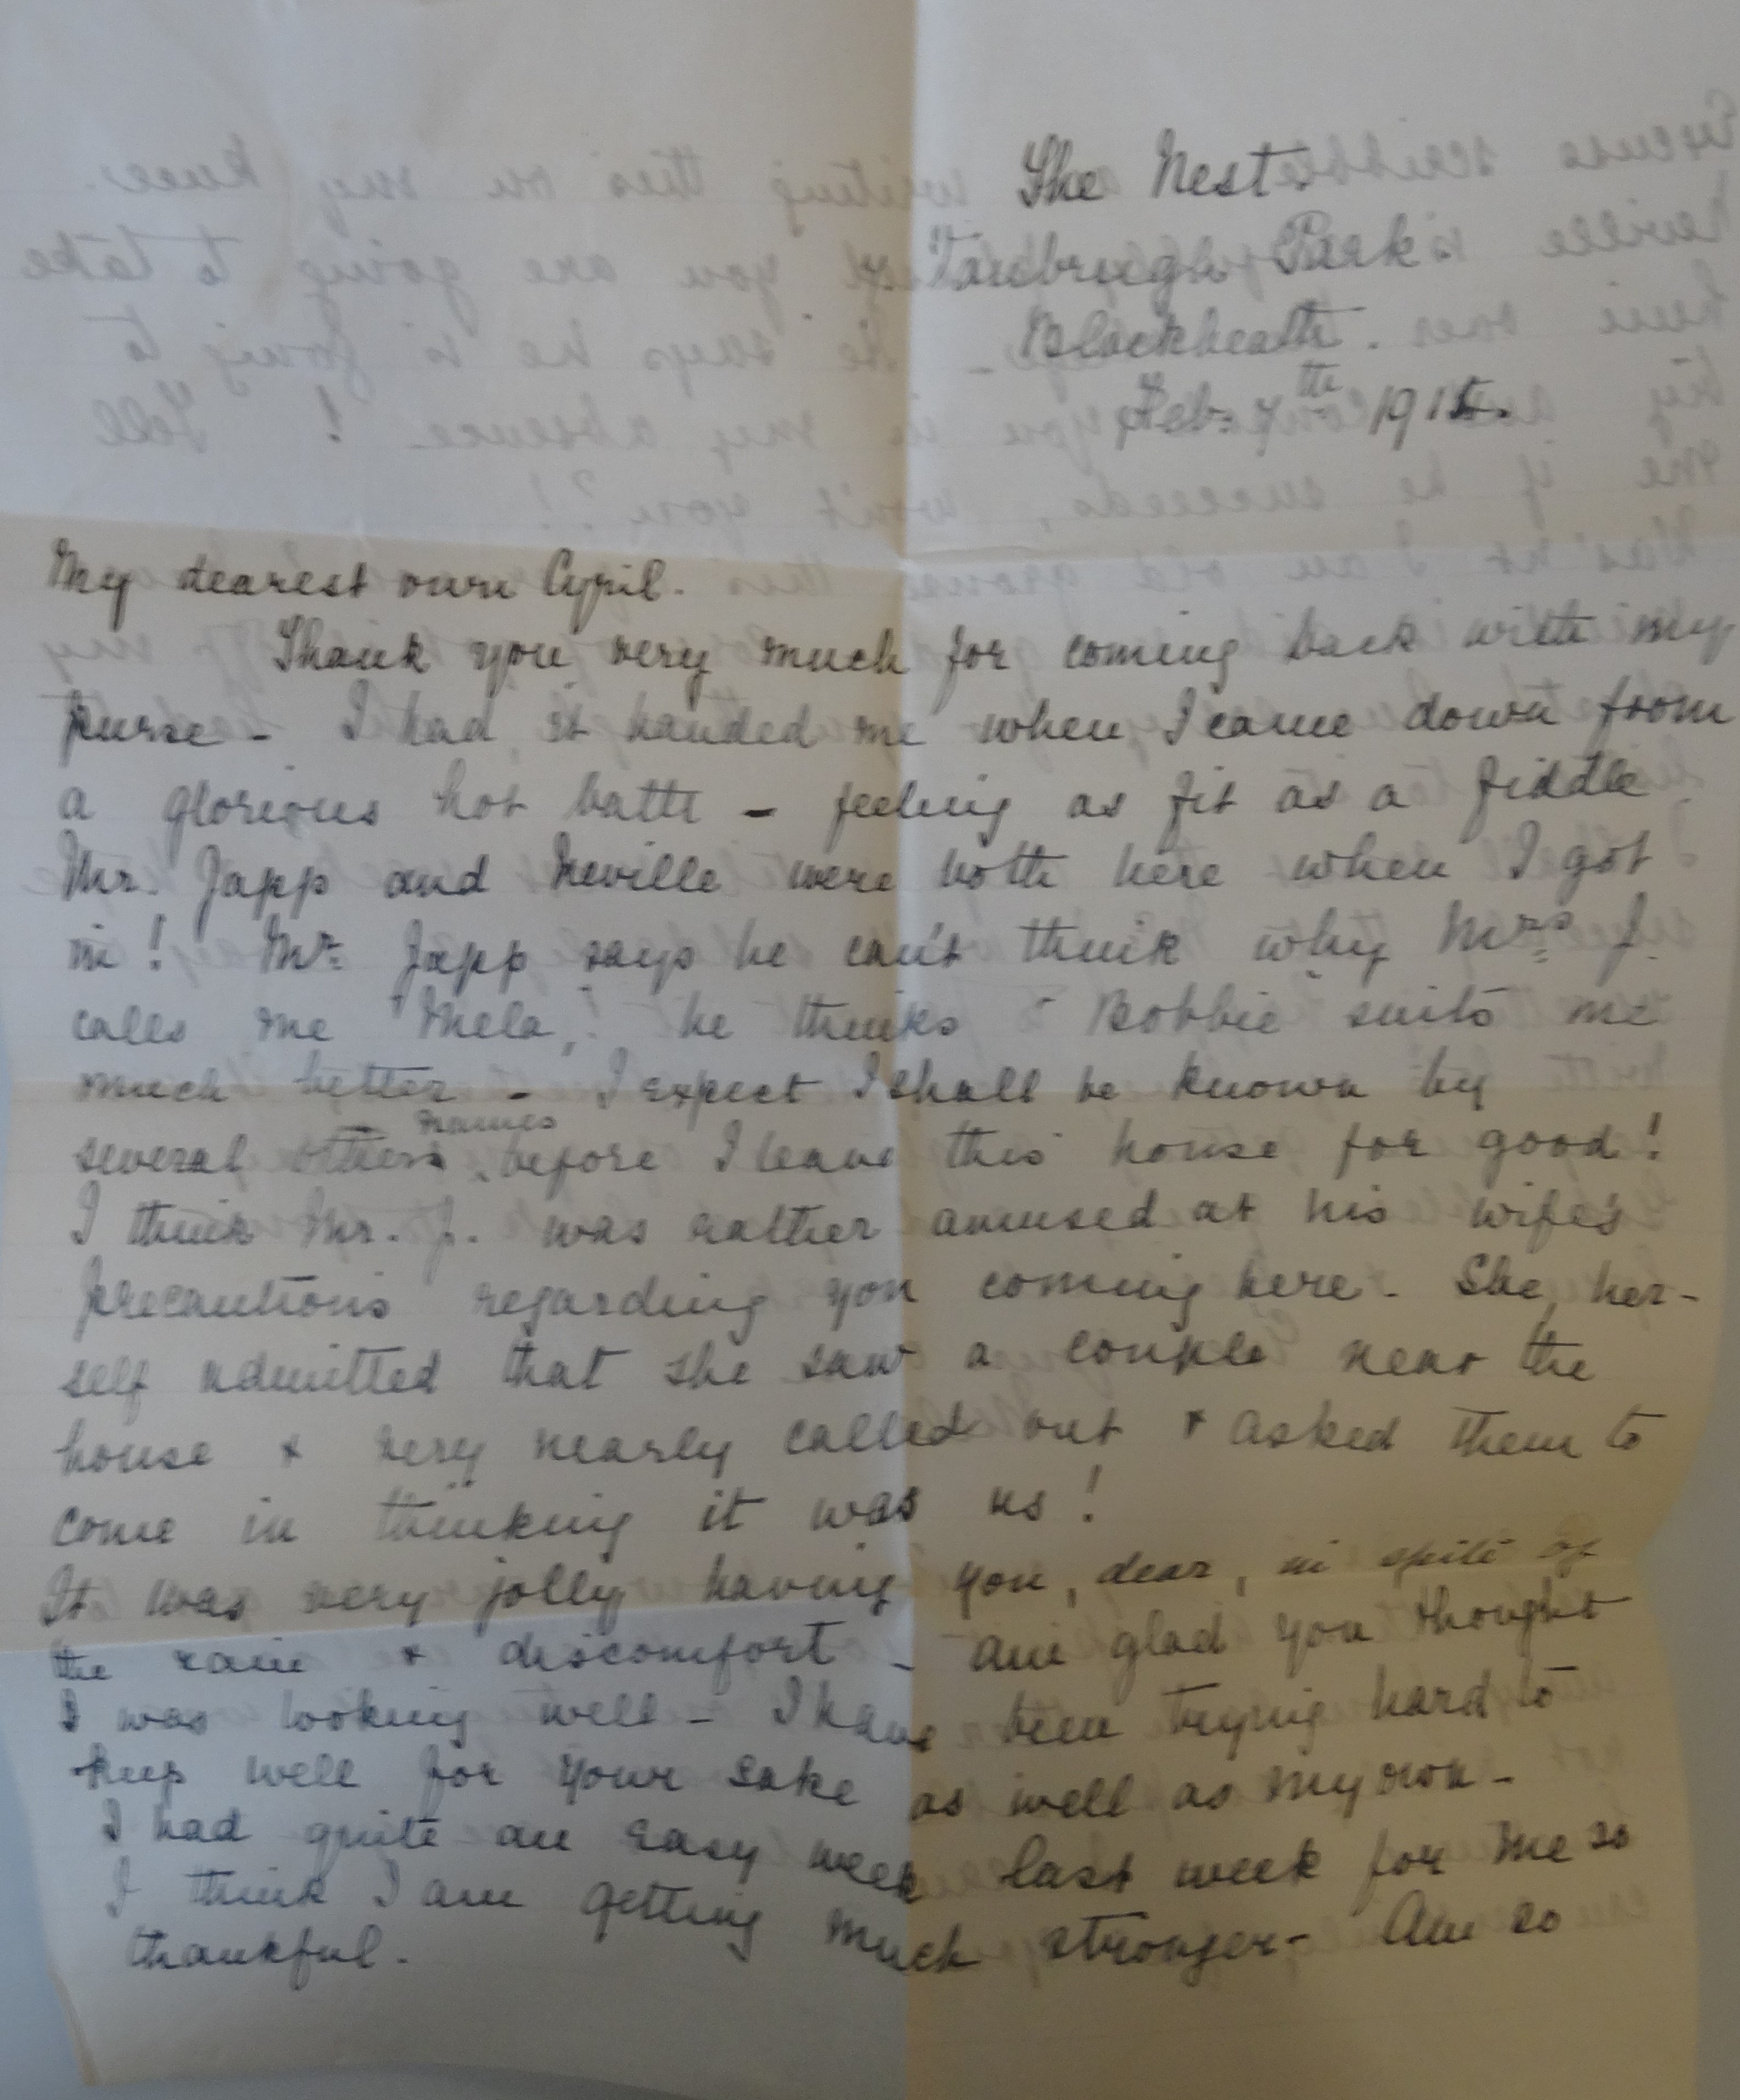 The Nest
7 Vanbrugh Park
Blackheath.
Feb: 7th 1915.
My dearest own Cyril.
Thank you very much for coming back with my
purse - I had it handed me when I came down from
a glorious hot bath - feeling as fit as a fiddle
Mr. Japp and Neville were both here when I got
in! Mr. Japp says he can't think why Mrs J.
calls me "Mela,"! he thinks "Bobbie" suits me
much better - I expect I shall be known by
several others names before I leave this house for good!
I think Mr. J. was rather amused at his wife's
precautions regarding you coming here. She, her-
self admitted that she saw a couple near the
house & very nearly called out & asked them to
come in thinking it was us!
It was very jolly having you, dear, in spite of
the rain & discomfort - am glad you thought
I was looking well - I have been trying hard to
keep well for your sake as well as my own -
I had quite an easy week last week for me so
I think I am getting much stronger - Am so
thankful.